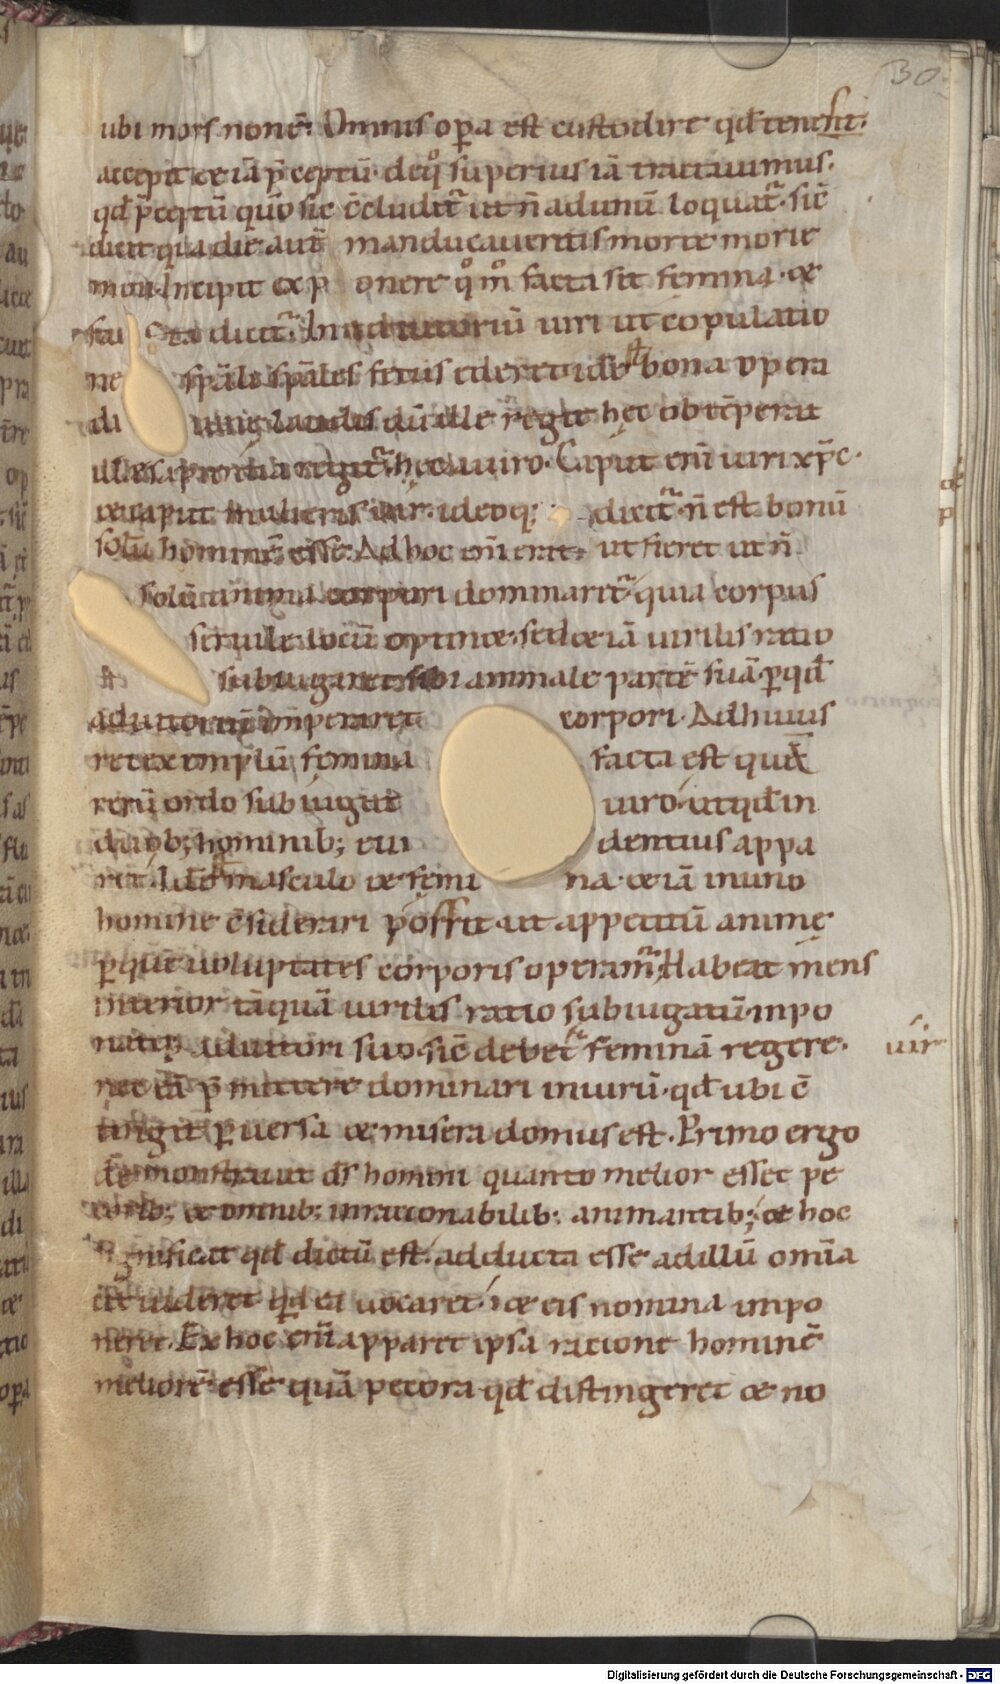 30
ubi mors non ē. Omnis oꝑa est custodire qđ tenensit.
accepit & iā p̄ceptū. de qͦ superius iā tractauimus.
qđ p̄ceptū quō sic c̄cludit᷑ ut n̄ ad unū loquat᷑. sic̄
dicit qua die aut̄ manducaueritis morte morie
mini. Incipit exp onere qͦ mͦ facta sit femina. &
dicit᷑. In adiutoriū uiri ut copulatio
ne spāli spāles fetus ederet idē bona opera
di laudis dū ille regit hec obtēperat
ille sapientia regit᷑. hec uiro. Caput enī uiri xp̄c.
& caput mulieris uir. ideoq; dicit᷑. n̄ est bonū
solū hominē esse. Ad hoc enī erat ut fieret ut n̄
solū anima corpori dominaret᷑. quia corpus
seruile locū optinet. sed & iā uirilis ratio
subiugaret sibi animale partē suā. ꝑ qđ
adiutoriū īmperaret corpori. Ad huius
rei exemplū femina facta est quā
rerū ordo subiugat uiro. ut qđ in
duob; hominib; eui dentius appa
ret. id ē masculo & femi na. & iā in uno
homine c̄siderari possit. ut appetitū anime
ꝑ quē uoluptates corporis operam᷑. Habeat mens
interior tāquā uirilis ratio subiugatū. inpo
adiutori suo. sic̄ debet feminā regere.
uir
nec eā ꝑmittere dominari in uirū. qđ ubi c̄
tingit ꝑuersa & misera domus est. Primo ergo
demonstrauit ds̄ homini quanto melior esset pe
corib; & omnib; inrationabilib; animantib; & hoc
significat qđ dictū est. adducta esse ad illū omīa
ut uideret qđ ea uocaret. & eis nomina impo
neret. Ex hoc enī apparet ipsa ratione hominē
meliorē esse quā pecora. qđ distingeret & no
Digitalisierung gefördert durch die Deutsche Forschungsgemeinschaft - DFG